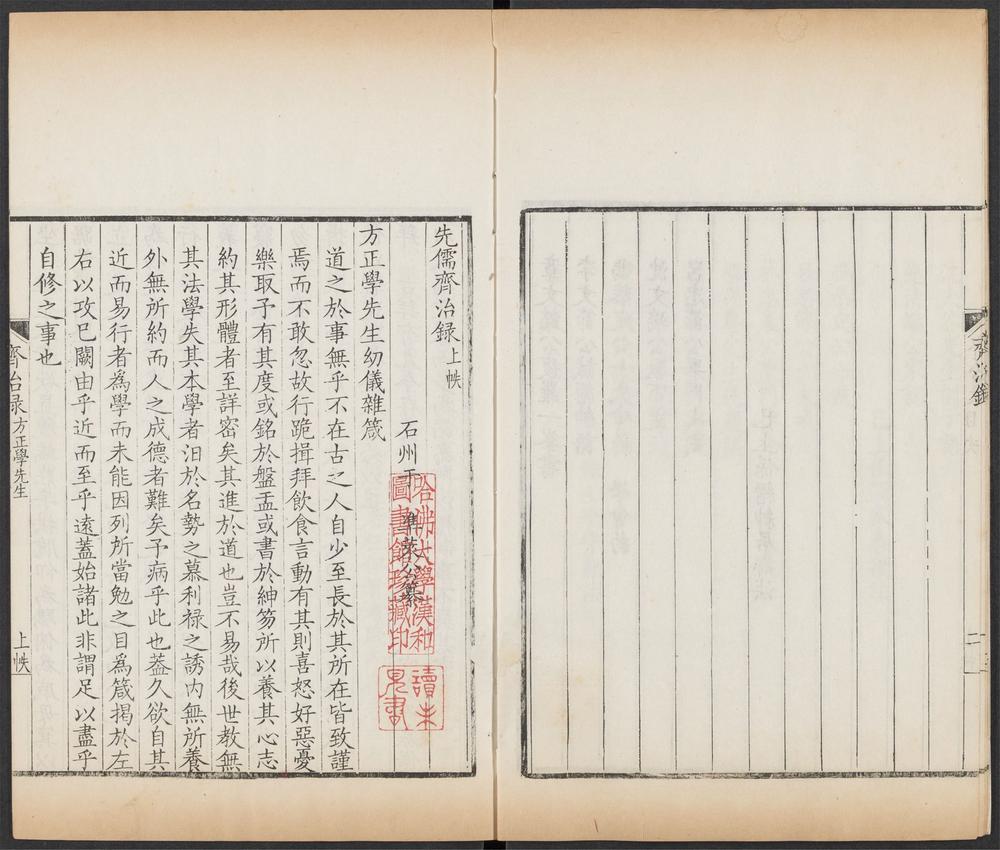 先儒齊治録 上帙
石州于 準萊公纂
方正學先生幼儀雜箴
道之於事無乎不在古之人自少至長於其所在皆致謹
焉而不敢忽故行跪揖拜飲食言動有其則喜怒好惡憂
樂取予有其度或銘於盤盂或書於紳笏所以養其心志
約其形體者至詳密矣其進於道也豈不易哉後世教無
其法學失其本學者汨於名勢之慕利禄之誘内無所養
外無所約而人之成德者難矣予病乎此也葢久欲自其
近而易行者爲學而未能因列所當勉之目爲箴揭於左
右以攻己闕由乎近而至乎遠蓋始諸此非謂足以盡乎
自修之事也
齊治录 方正學先生 上帙
哈佛大學漢和
圖書館珍藏印
讀未
見書
齊治録
二